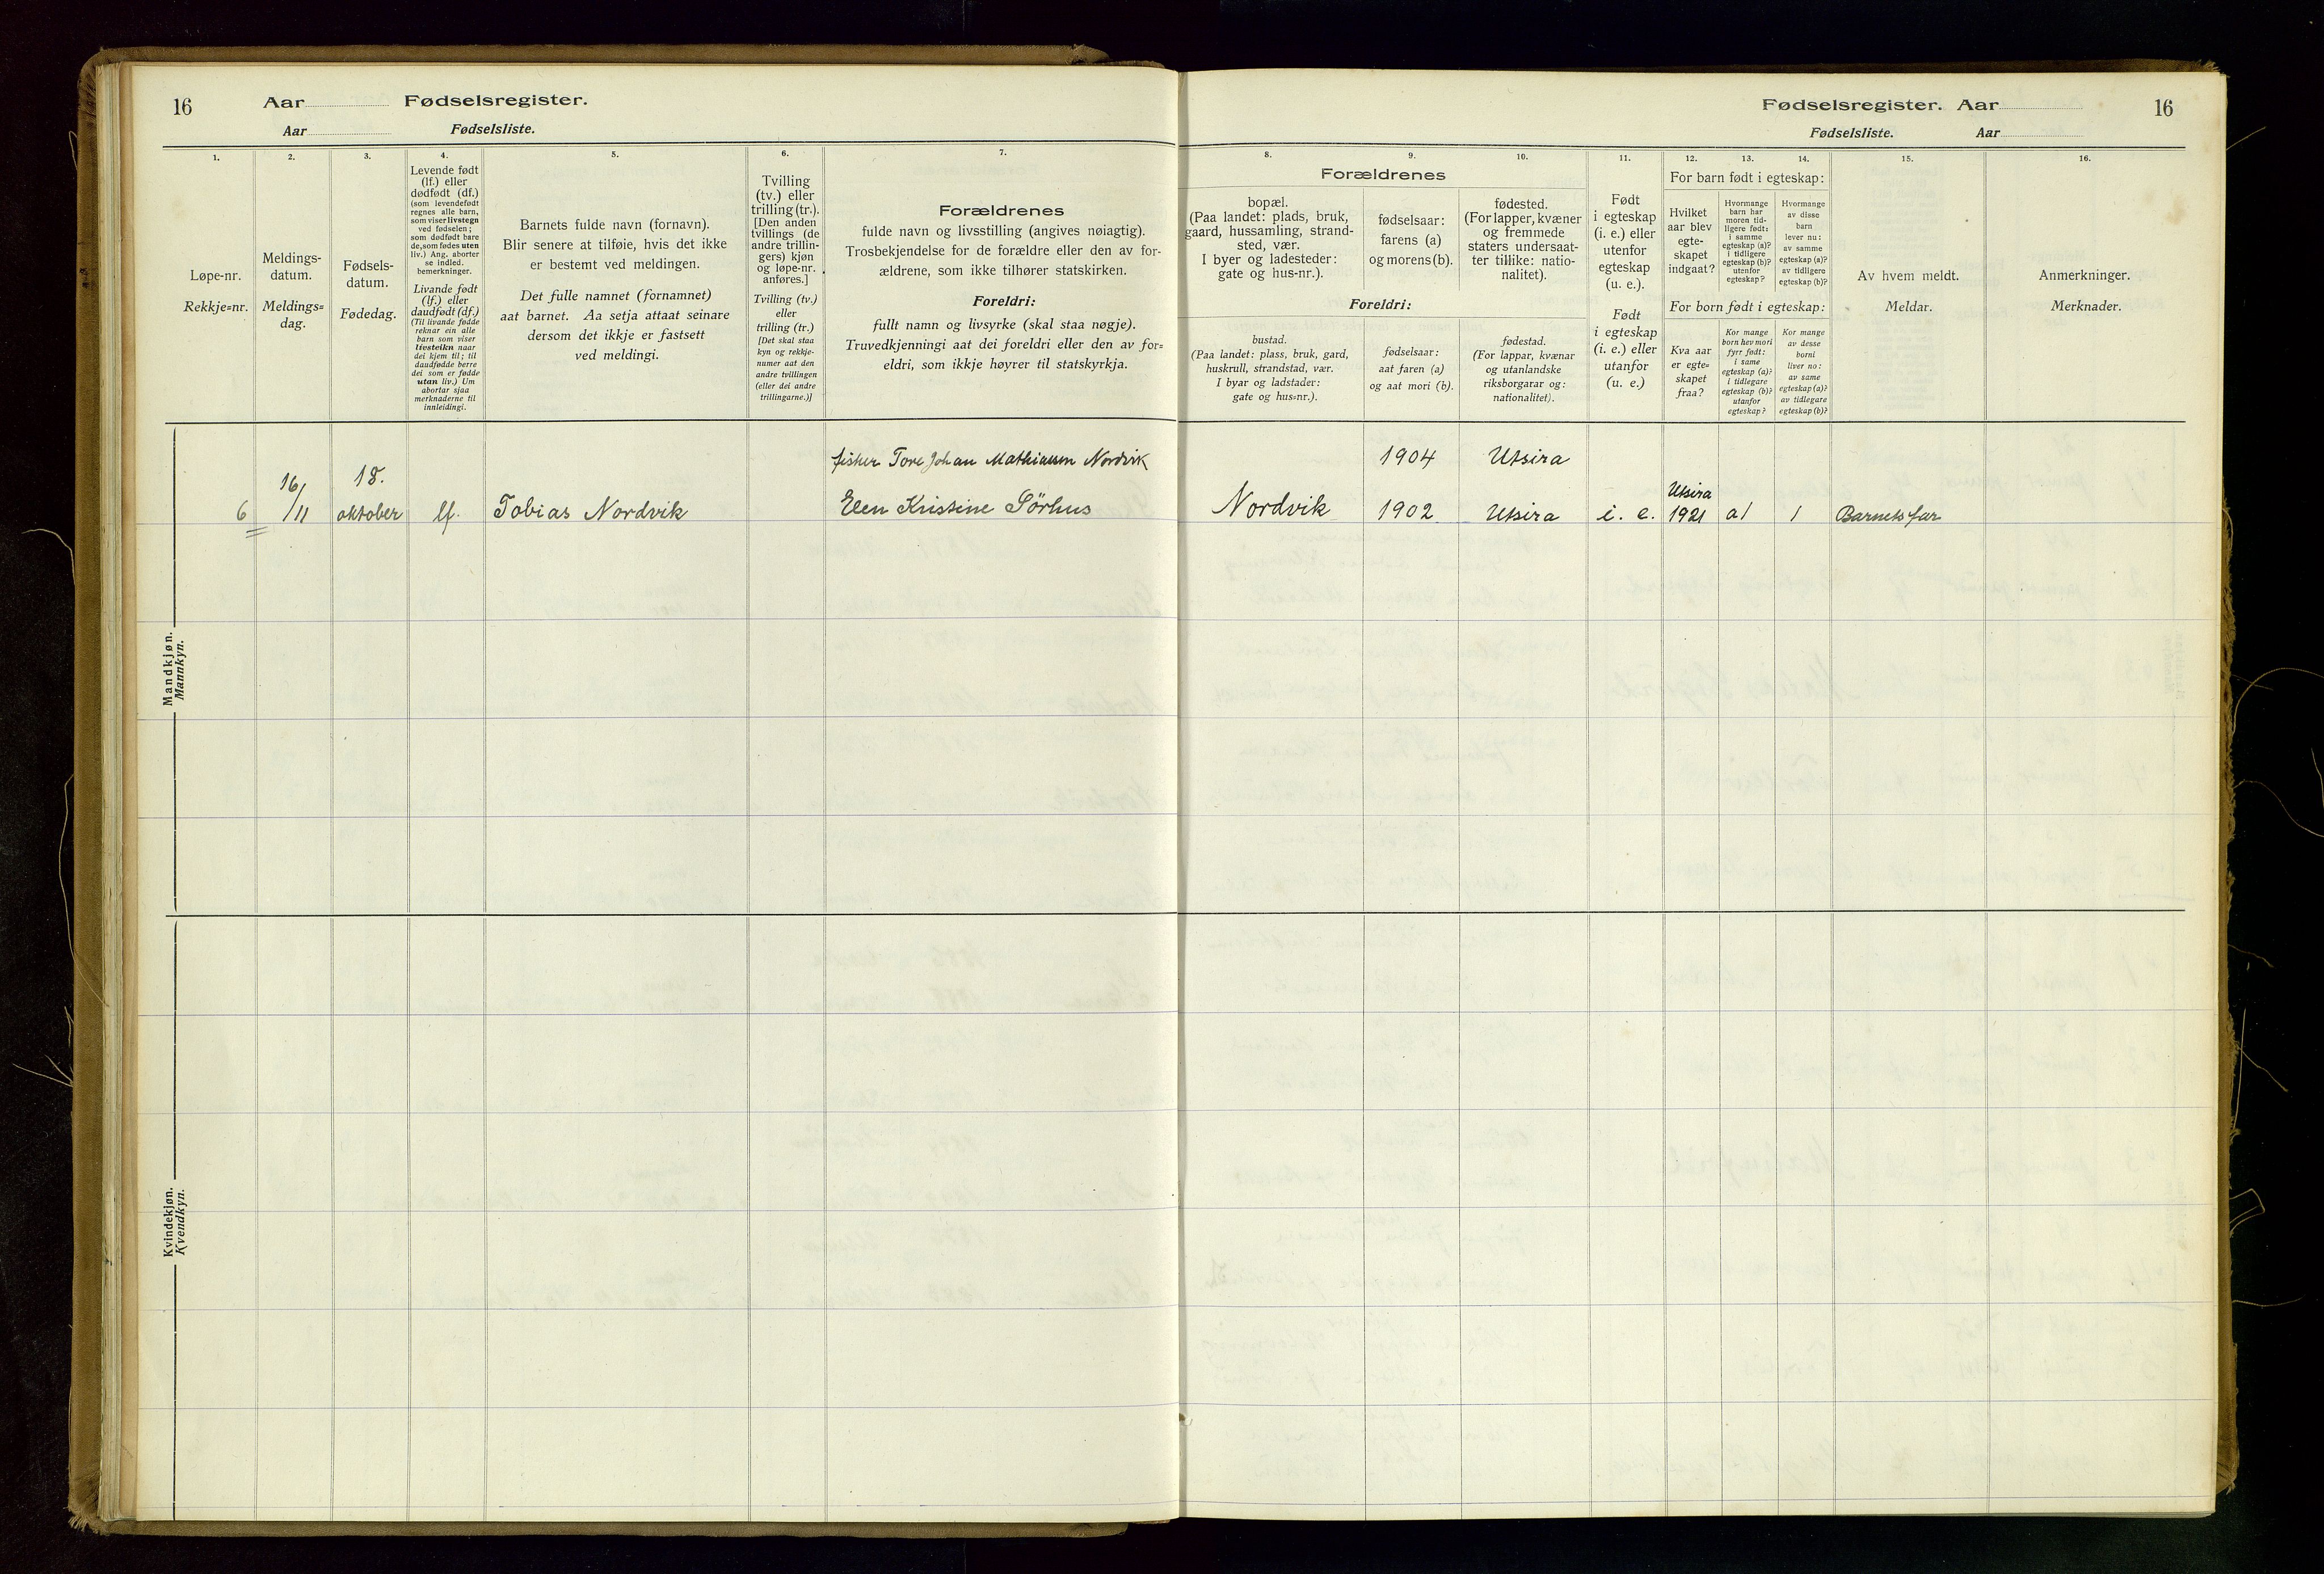 16
Aar Fødselsregister.
Aar Fødselsliste.
Fødselsregister. Aar
16
Fødselsliste. Aar
1.
Løpe-nr.
Rekkje=nr.
2.
Meldings-
datum.
Meldings=
dag.
3.
Fødsels-
datum.
Fødedag.
4.
Levende født
(lf.) eller
dødfødt (df.)
(som levendefødt
regnes alle barn,
som viser livstegn
ved fødselen;
som dødfødt bare
de, som fødes uten
liv.) Ang. aborter
se indled.
bemerkninger.
Livande født
(lf.) eller
daudfødt (df.)
(Til livande fødde
reknar ein alle
barn som viser
livsteikn naar
dei kjem til; til
daudfødde berre
dei som er fødde
utan liv.) Um
abortar sjaa
merknaderne til
innleidingi.
5.
Barnets fulde navn (fornavn).
Blir senere at tilføie, hvis det ikke
er bestemt ved meldingen.
Det fulle namnet (fornamnet)
aat barnet. Aa setja attaat seinare
dersom det ikkje er fastsett
ved meldingi.
6.
Tvilling
(tv.) eller
trilling (tr.).
[Den anden
tvillings (de
andre trillin-
gers) kjøn
og løpe-nr.
anføres.]
Tvilling (tv.)
eller
trilling (tr.)
[Det skal staa
kyn og rekkje-
numer aat den
andre tvillingen
(eller dei andre
trillingarne.)]
7.
Forældrenes
fulde navn og livsstilling (angives nøiagtig).
Trosbekjendelse for de forældre eller den av for-
ældrene, som ikke tilhører statskirken.
Foreldri:
fullt namn og livsyrke (skal staa nøgje).
Truvedkjenningi aat dei foreldri eller den av for=
eldri, som ikkje høyrer til statskyrkja.
Forældrenes
8.
bopæl.
(Paa landet: plads, bruk,
gaard, hussamling, strand-
sted, vær.
I byer og ladesteder:
gate og hus-nr.).
9.
fødselsaar:
farens (a)
og morens (b).
10.
fødested.
(For lapper, kvæner
og fremmede
staters undersaat-
ter tillike: natio-
nalitet).
Foreldri:
bustad.
(Paa landet: plass, bruk, gard,
huskrull, strandstad, vær.
I byar og ladstader:
gate og hus=nr.).
fødselsaar:
aat faren (a)
og aat mori (b).
fødestad.
(For lappar, kvænar
og utanlandske
riksborgarar og:
nationalitet).
11.
Født
i egteskap
(i. e.) eller
utenfor
egteskap
(u. e.).
Født
i egteskap
(i. e.) eller
utanfor
(u. e.)
12. 13. 14.
For barn født i egteskap:
Hvilket
aar blev
egte-
skapet
indgaat?
Hvormange
barn har
moren tid-
ligere født:
i samme
egteskap (a)?
i tidligere
egteskap (b)?
utenfor
egteskap?
Hvormange
av disse
barn
lever nu:
av samme
egteskap (a)?
av tidligere
egteskap (b)?
For born født i egteskap:
Kva aar
er egte=
skapet
fraa?
Kor mange
born hev mori
fyrr født:
i same
egteskap (a)?
i tidlegare
egteskap (b)?
utanfor
egteskap?
Kor mange
av desse
borni
liver no:
av same
egteskap (a)?
av tidlegare
egteskap (b)?
15.
Av hvem meldt.
Meldar.
16.
Anmerkninger.
Merknader.
Mandkjøn.
Mannkyn.
18. fisker Tore Johan Mathiassen Nordvik 1904 Utsira
6 16/11 oktober lf. Tobias Nordvik Elen Kristine Sørhus Nordvik 1902 Utsira i. e. Utsira 1921 a1 1 Barnets far
Kvindekjøn.
Kvendkyn.